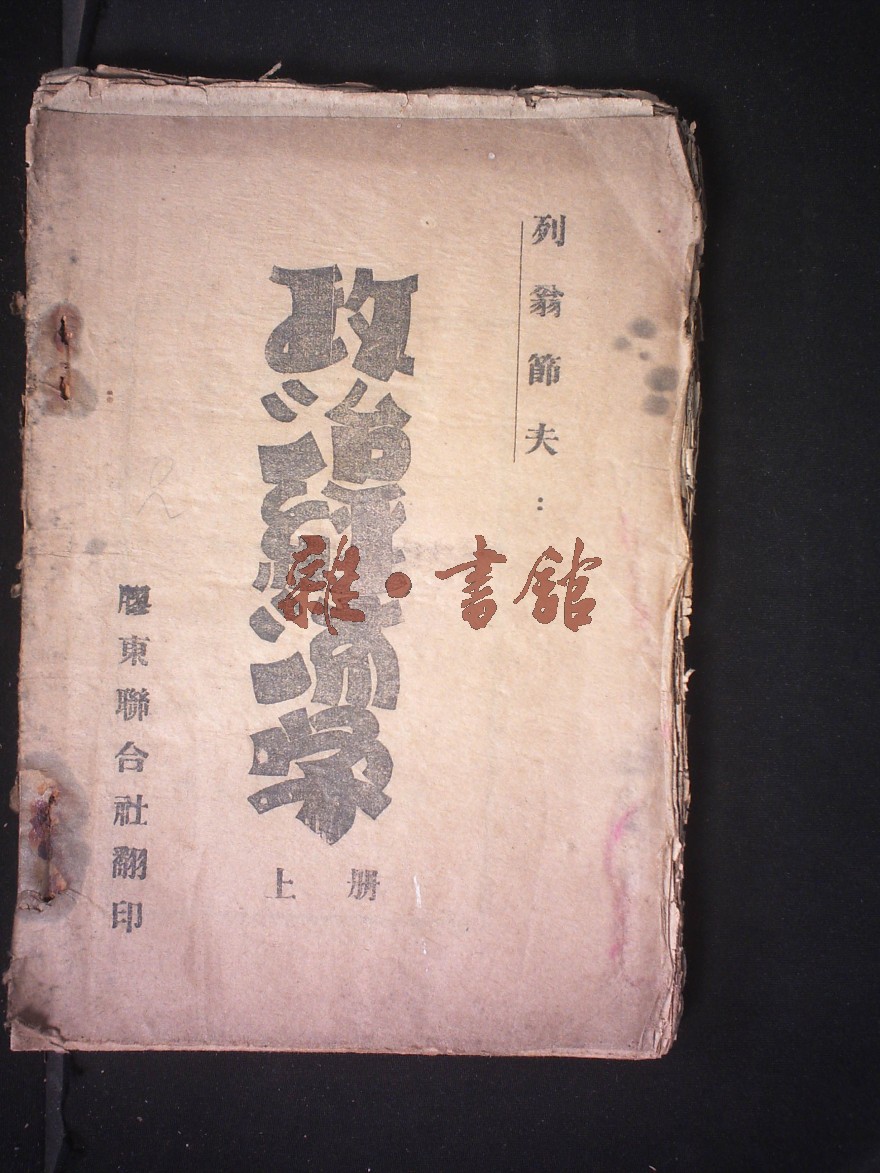 列翁節夫：
政治經济学
上册
膠東聯合社翻印
雜·書館